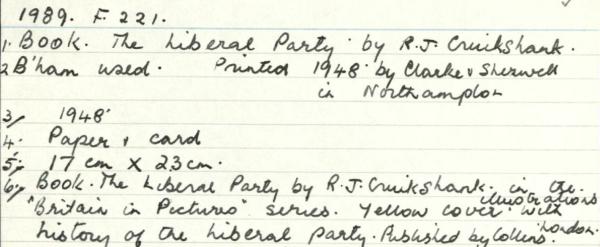 1989. F. 221.
1. Book. The Liberal Party by R.J. Cruikshank.
2 B'ham used. Printed 1948 by Clarke & Sherwell
in Northampton
3/ 1948
4. Paper & card
5. 17 cm X 23 cm.
6. Book. The Liberal Party by R.J. Cruikshank. in the
"Britain in Pictures" series. Yellow cover with illustrations
history of the liberal party. Published by Collins. London.